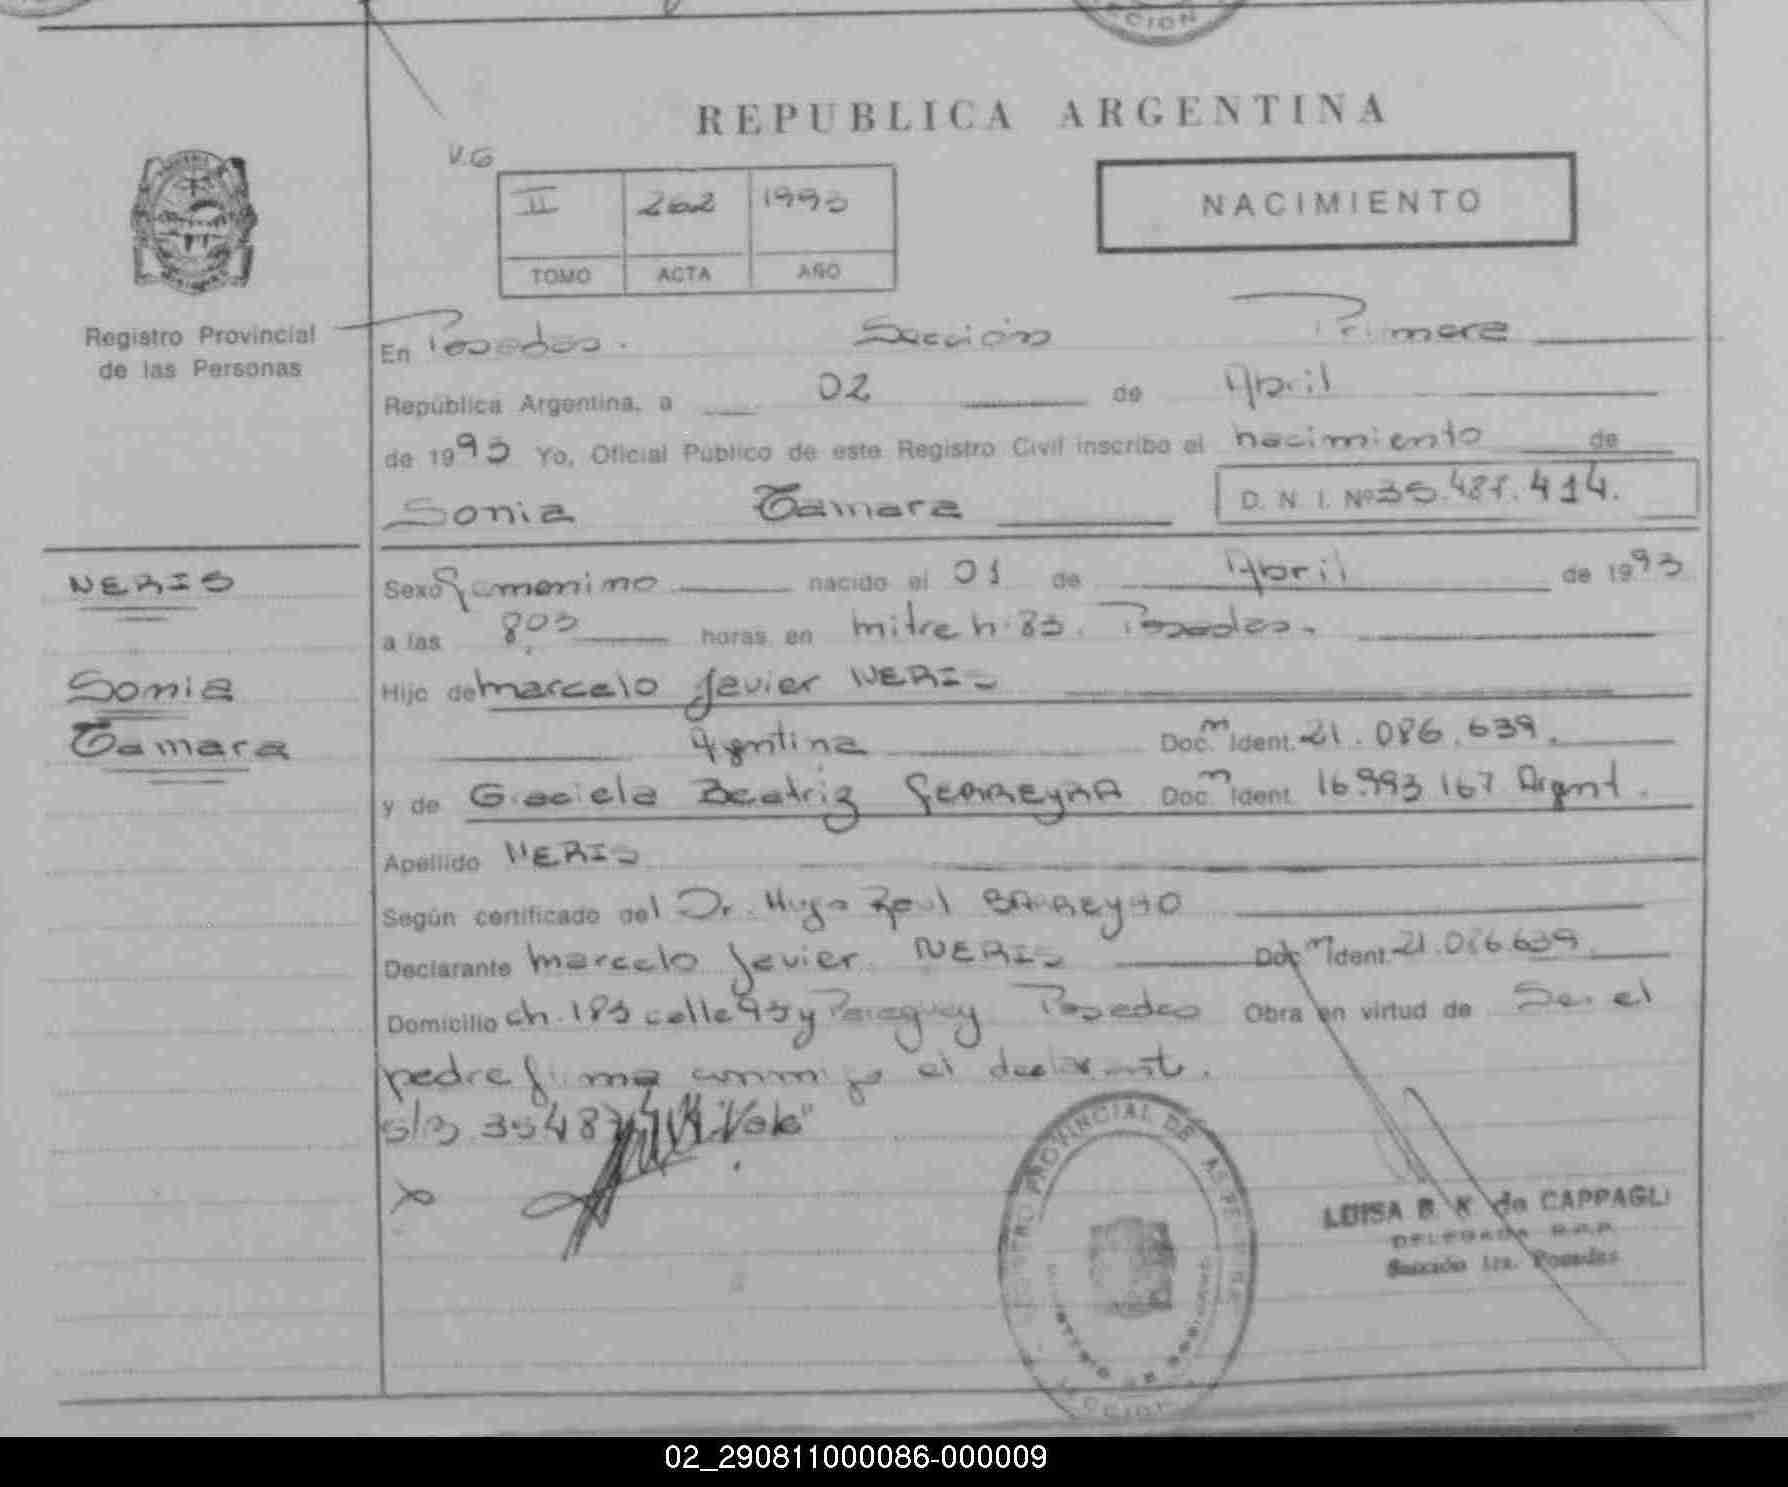 CION
REPUBLICA ARGENTINA
V.G
II 262 1993
TOMO ACTA AÑO
NACIMIENTO
Registro Provincial
de las Personas
En Posadas. Sección Primera
República Argentina, a 02 de Abril
de 1993 Yo, Oficial Público de este Registro Civil inscribo el nacimiento de
Sonia Tamara D. N. I. Nº 35.487.414.
NERIS
Sonia
Tamara
Sexo femenino nacido el 01 de Abril de 1993
a las 8,03 horas en mitre n. 83. Posadas.
Hijo de marcelo Javier NERIS
Agntina Doc. m Ident. 21.086.639.
y de Graciela Beatriz FERREYRA Doc. m Ident. 16.993 167 Argnt.
Apellido NERIS
Según certificado del Dr. Hugo Raul BARREYRO
Declarante marcelo Javier NERIS Doc m Ident. 21.086.639
Domicilio ch. 183 calle 93 y Paraguay Posadas Obra en virtud de Ser el
padre firma conmigo el declarante.
S/B 35487 "Vale"
REGISTRO PROVINCIAL DE LAS PERSONAS
LUISA B. K de CAPPAGLI
DELEGADA R.P.P.
Sección 1ra. Posadas
02_290811000086-000009